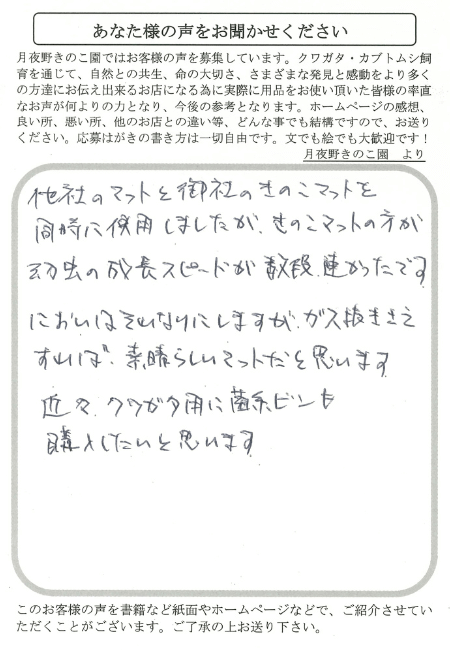 あなた様の声をお聞かせください
月夜野きのこ園ではお客様の声を募集しています。クワガタ・カブトムシ飼
育を通じて、自然との共生、命の大切さ、さまざまな発見と感動をより多く
の方達にお伝え出来るお店になる為に実際に用品をお使い頂いた皆様の率直
なお声が何よりの力となり、今後の参考となります。ホームページの感想、
良い所、悪い所、他のお店との違い等、どんな事でも結構ですので、お送り
ください。応募はがきの書き方は一切自由です。文でも絵でも大歓迎です！
月夜野きのこ園　より
他社のマットと御社のきのこマットを
同時に使用しましたが、きのこマットの方が
幼虫の成長スピードが数段速かったです
においはそれなりにしますが、ガス抜きさえ
すれば、素晴らしいマットだと思います
近々、クワガタ用に菌糸ビンも
購入したいと思います
このお客様の声を書籍など紙面やホームページなどで、ご紹介させてい
ただくことがございます。ご了承の上お送り下さい。